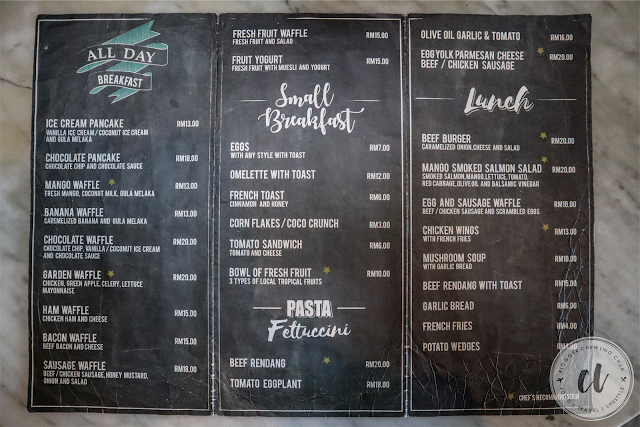 ALL DAY
BREAKFAST
ICE CREAM PANCAKE RM13.00
VANILLA ICE CREAM / COCONUT ICE CREAM
AND GULA MELAKA
CHOCOLATE PANCAKE RM18.00
CHOCOLATE CHIP AND CHOCOLATE SAUCE
MANGO WAFFLE RM13.00
FRESH MANGO, COCONUT MILK, GULA MELAKA
BANANA WAFFLE RM13.00
CARMELIZED BANANA AND GULA MELAKA
CHOCOLATE WAFFLE RM20.00
CHOCOLATE CHIP, VANILLA / COCONUT ICE CREAM
AND CHOCOLATE SAUCE
GARDEN WAFFLE RM20.00
CHICKEN, GREEN APPLE, CELERY, LETTUCE
MAYONNAISE
HAM WAFFLE RM15.00
CHICKEN HAM AND CHEESE
BACON WAFFLE RM15.00
BEEF BACON AND CHEESE
SAUSAGE WAFFLE RM18.00
BEEF / CHICKEN SAUSAGE, HONEY MUSTARD,
ONION AND SALAD
FRESH FRUIT WAFFLE RM15.00
FRESH FRUIT AND SALAD
FRUIT YOGURT RM15.00
FRESH FRUIT WITH MUESLI AND YOGURT
Small
Breakfast
EGGS RM7.00
WITH ANY STYLE WITH TOAST
OMELETTE WITH TOAST RM12.00
FRENCH TOAST RM6.00
CINNAMON AND HONEY
CORN FLAKES / COCO CRUNCH RM3.00
TOMATO SANDWICH RM6.00
TOMATO AND CHEESE
BOWL OF FRESH FRUIT RM10.00
3 TYPES OF LOCAL TROPICAL FRUITS
PASTA
Fettuccini
BEEF RENDANG RM20.00
TOMATO EGGPLANT RM18.00
OLIVE OIL GARLIC & TOMATO RM16.00
EGG YOLK PARMESAN CHEESE RM20.00
BEEF / CHICKEN SAUSAGE
Lunch
BEEF BURGER RM20.00
CARAMELIZED ONION, CHEESE AND SALAD
MANGO SMOKED SALMON SALAD RM20.00
SMOKED SALMON, MANGO, LETTUCE, TOMATO,
RED CABBAGE, OLIVE OIL AND BALSAMIC VINEGAR
EGG AND SAUSAGE WAFFLE RM18.00
BEEF / CHICKEN SAUSAGE AND SCRAMBLED EGGS
CHICKEN WINGS RM13.00
WITH FRENCH FRIES
MUSHROOM SOUP RM10.00
WITH GARLIC BREAD
BEEF RENDANG WITH TOAST RM15.00
GARLIC BREAD RM6.00
FRENCH FRIES RM4.00
POTATO WEDGES
CHEF'S RECOMMENDATION
TRAVEL | LIFESTYLE